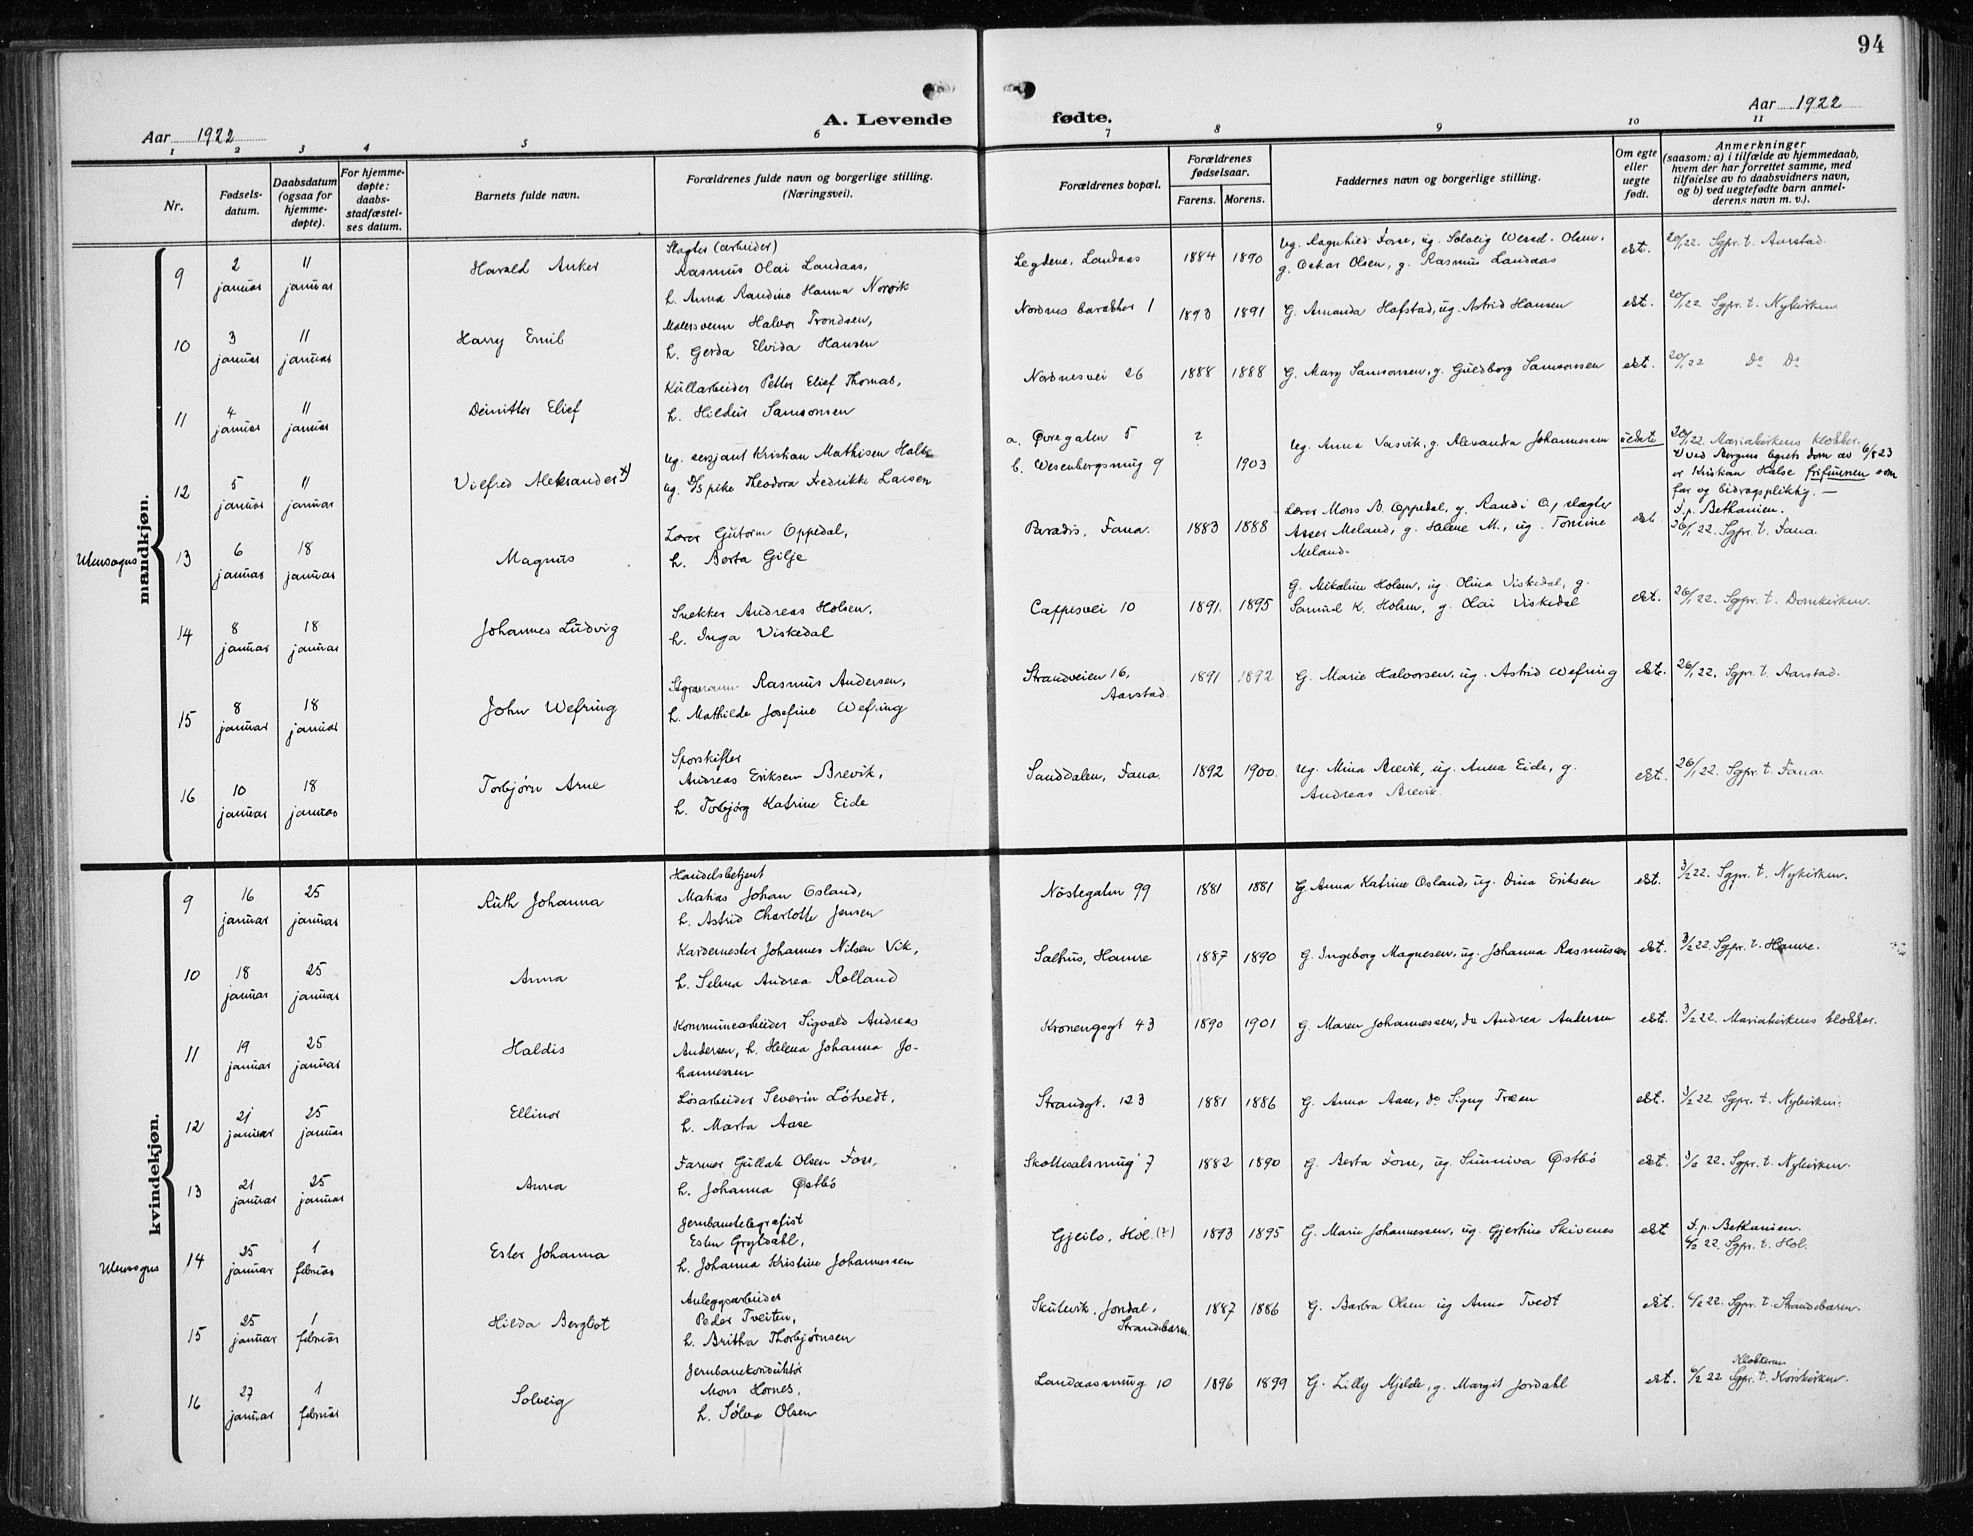 94
Aar 1922
A. Levende fødte.
Aar 1922
1 2 3 4 5 6 7 8 9 10 11
Nr.
Fødsels-
datum.
Daabsdatum
(ogsaa for
hjemme-
døpte).
For hjemme-
døpte:
daabs-
stadfæstel-
ses datum.
Barnets fulde navn.
Forældrenes fulde navn og borgerlige stilling.
(Næringsvei).
Forældrenes bopæl.
Forældrenes
fødselsaar.
Farens. Morens.
Faddernes navn og borgerlige stilling.
Om egte
eller
uegte
født.
Anmerkninger
(saasom: a) i tilfælde av hjemmedaab,
hvem der har forrettet samme, med
tilføielse av to daabsvidners navn,
og b) ved uegtefødte barn anmel-
derens navn m. v.).
mandkjøn.
9
2 januar
11 januar
Harald Anker
Slagter (arbeider)
Rasmus Olai Landaas,
h. Anna Randine Hanna Norvik
Legdene, Landaas
1884 1890
ug. Ragnhild Fosse, ug. Solveig Wesed. Olsen,
g. Oskar Olsen, g. Rasmus Landaas
ekt.
20/1 22. Sgpr. t. Aarstad.
10
3 januar
11 januar
Harry Emil
Malersvenn Halvor Trondsen,
h. Gerda Elvida Hansen
Nordnes barakker 1
1893 1891
G. Amanda Hofstad, ug. Astrid Hansen
ekt.
20/1 22. Sgpr. t. Nykirken
11
4 januar
11 januar
Elief
Kullarbeider Petter Elief Thomas,
h. Hildur Samsonsen
Nordnesvei 26
1888 1888
G. Mary Samsonsen, g. Guldborg Samsonsen
ekt.
20/1 22 Do Do
12
5 januar
11 januar
Vilfred Aleksander +)
ug. sersjant Kristian Mathisen Halse
ug. D/s pike Theodora Fredrikke Larsen
a. Øvregaten 5
b. Wesenbergsmug 9
? 1903
ug. Anna Vasvik, g. Alexandra Johannessen
uekte
20/1 22. Mariakirkens klokker.
+) ved Bergens byrets dom av 6/8 23
er Kristian Halse frifunnen som
far og bidragspliktig. —
Utensogns
13
6 januar
18 januar
Magnus
Lærer Gutorm Oppedal,
h. Berta Gilje
Paradis, Fana.
1883 1888
Lærer Mons B. Oppedal, g. Randi O., slagter
Asser Meland, g. Helene M., ug. Tomine
Meland.
ekt
F. p. Bethanien.
26/1 22. Sgpr. t. Fana.
14
8 januar
18 januar
Johannes Ludvig
Snekker Andreas Holsen,
h. Inga Viskedal
Cappesvei 10
1891. 1895
G. Mikaline Holsen, ug. Olina Viskedal, g.
Samuel K. Holsen, g. Olai Viskedal
ekt.
26/1 22. Sgpr. t. Domkirken.
15
8 januar
18 januar
John Wefring
Rasmus Andersen,
h. Mathilde Josefine Wefring
Strandveien 16,
Aarstad.
1891 1892
G. Marie Halvorsen, ug. Astrid Wefring
ekt.
26/1 22. Sgpr. t. Aarstad.
16
10 januar
18 januar
Torbjørn Arne
Sporskifter
Andreas Eriksen Brevik,
h. Torbjørg Katrine Eide
Sanddalen, Fana.
1892 1900.
ug. Mina Brevik, ug. Anna Eide, g.
Andreas Brevik.
ekt.
26/1 22. Sgpr. t. Fana.
kvindekjøn.
9
16 januar
25 januar
Ruth Johanna
Handelsbetjent
Matias Johan Osland,
h. Astrid Charlotte Jensen
Nøstegaten 99
1881 1881
G. Anna Katrine Osland, ug. Dina Eriksen
ekt.
3/2 22. Sgpr. t. Nykirken.
10
18 januar
25 januar
Anna
Kardemester Johannes Nilsen Vik,
h. Selma Andrea Rolland
Salhus, Hamre
1887 1890
G. Ingeborg Magnesen, ug. Johanna Rasmussen
ekt.
3/2 22. Sgpr. t. Hamre.
11
19 januar
25 januar
Haldis
Kommunearbeider Sigvald Andreas
Andersen, h. Helena Johanna Jo-
hannessen
Kronengsgt 43
1890 1901
G. Maren Johannessen, do Andrea Andersen
ekt.
3/2 22. Mariakirkens klokker.
12
21 januar
25 januar
Ellinor
Løsarbeider Severin Løtvedt,
h. Marta Aase
Strandgt. 123
1881 1886
G. Anna Aase, do Signy Træen
ekt.
3/2 22. Sgpr. t. Nykirken.
13
21 januar
25 januar
Anna
Farmer Gullak Olsen Foss,
h. Johanna Østbø
Skottealsmug 7
1882 1890
G. Berta Fosse, ug. Sunniva Østbø
ekt.
3/2 22. Sgpr. t. Nykirken.
Utensogns
14
25 januar
1 februar
Ester Johanna
Jernbanetelegrafist
Grytdahl,
h. Johanna Kristine Johannessen
Gjeilo, Hol. (?)
1893 1895
G. Marie Johannessen, ug. Gjertine Skivenes
ekt
F. p. Bethanien.
6/2 22. Sgpr. t. Hol.
15
25 januar
1 februar
Hilda Bergliot
Anleggsarbeider
Peder Tveiten,
h. Britha Thorbjørnsen
Skutevik, Jondal,
Strandebarm.
1887 1886
G. Barbra Olsen ug Anna Tvedt
ekt.
6/2 22. Sgpr. t. Strandebarm.
16
27 januar
1 februar
Solveig
Jernbanekonduktør
Mons Hornes,
h. Sølva Olsen
Landaasmug 10
1896 1899
G. Lilly Mjelde, g. Margit Jordahl
ekt.
Klokkeren
6/2 22 Sgpr. t. Korskirken.